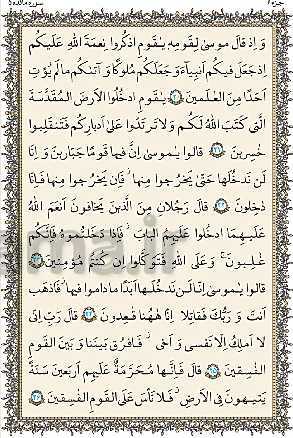 جزء ۶ سوره مائده ۵
وَ اِذ قالَ موسىٰ لِقَومِهٖ يٰقَومِ اذكُروا نِعمَةَ اللهِ عَلَيكُم
اِذ جَعَلَ فيكُم اَنبِيآءَ وَ جَعَلَكُم مُلوكًا وَ ءاتٰىكُم ما لَم يُؤتِ
اَحَدًا مِنَ العٰلَمينَ ﴿۲۰﴾ يٰقَومِ ادخُلُوا الاَرضَ المُقَدَّسَةَ
الَّتى كَتَبَ اللهُ لَكُم وَ لا تَرتَدّوا عَلىٰ اَدبارِكُم فَتَنقَلِبوا
خٰسِرينَ ﴿۲۱﴾ قالوا يٰموسىٰ اِنَّ فيها قَومًا جَبّارينَ وَ اِنّا
لَن نَدخُلَها حَتّىٰ يَخرُجوا مِنها فَاِن يَخرُجوا مِنها فَاِنّا
دٰخِلونَ ﴿۲۲﴾ قالَ رَجُلانِ مِنَ الَّذينَ يَخافونَ اَنعَمَ اللهُ
عَلَيهِمَا ادخُلوا عَلَيهِمُ البابَ فَاِذا دَخَلتُموهُ فَاِنَّكُم
غٰلِبونَ وَ عَلَى اللهِ فَتَوَكَّلوا اِن كُنتُم مُؤمِنينَ ﴿۲۳﴾
قالوا يٰموسىٰ اِنّا لَن نَدخُلَها اَبَدًا ما داموا فيها فَاذهَب
اَنتَ وَ رَبُّكَ فَقاتِلا اِنّا هٰهُنا قٰعِدونَ ﴿۲۴﴾ قالَ رَبِّ اِنّى
لا اَملِكُ اِلّا نَفسى وَ اَخى فَافرُق بَينَنا وَ بَينَ القَومِ
الفٰسِقينَ ﴿۲۵﴾ قالَ فَاِنَّها مُحَرَّمَةٌ عَلَيهِم اَربَعينَ سَنَةً
يَتيهونَ فِى الاَرضِ فَلا تَأسَ عَلَى القَومِ الفٰسِقينَ ﴿۲۶﴾